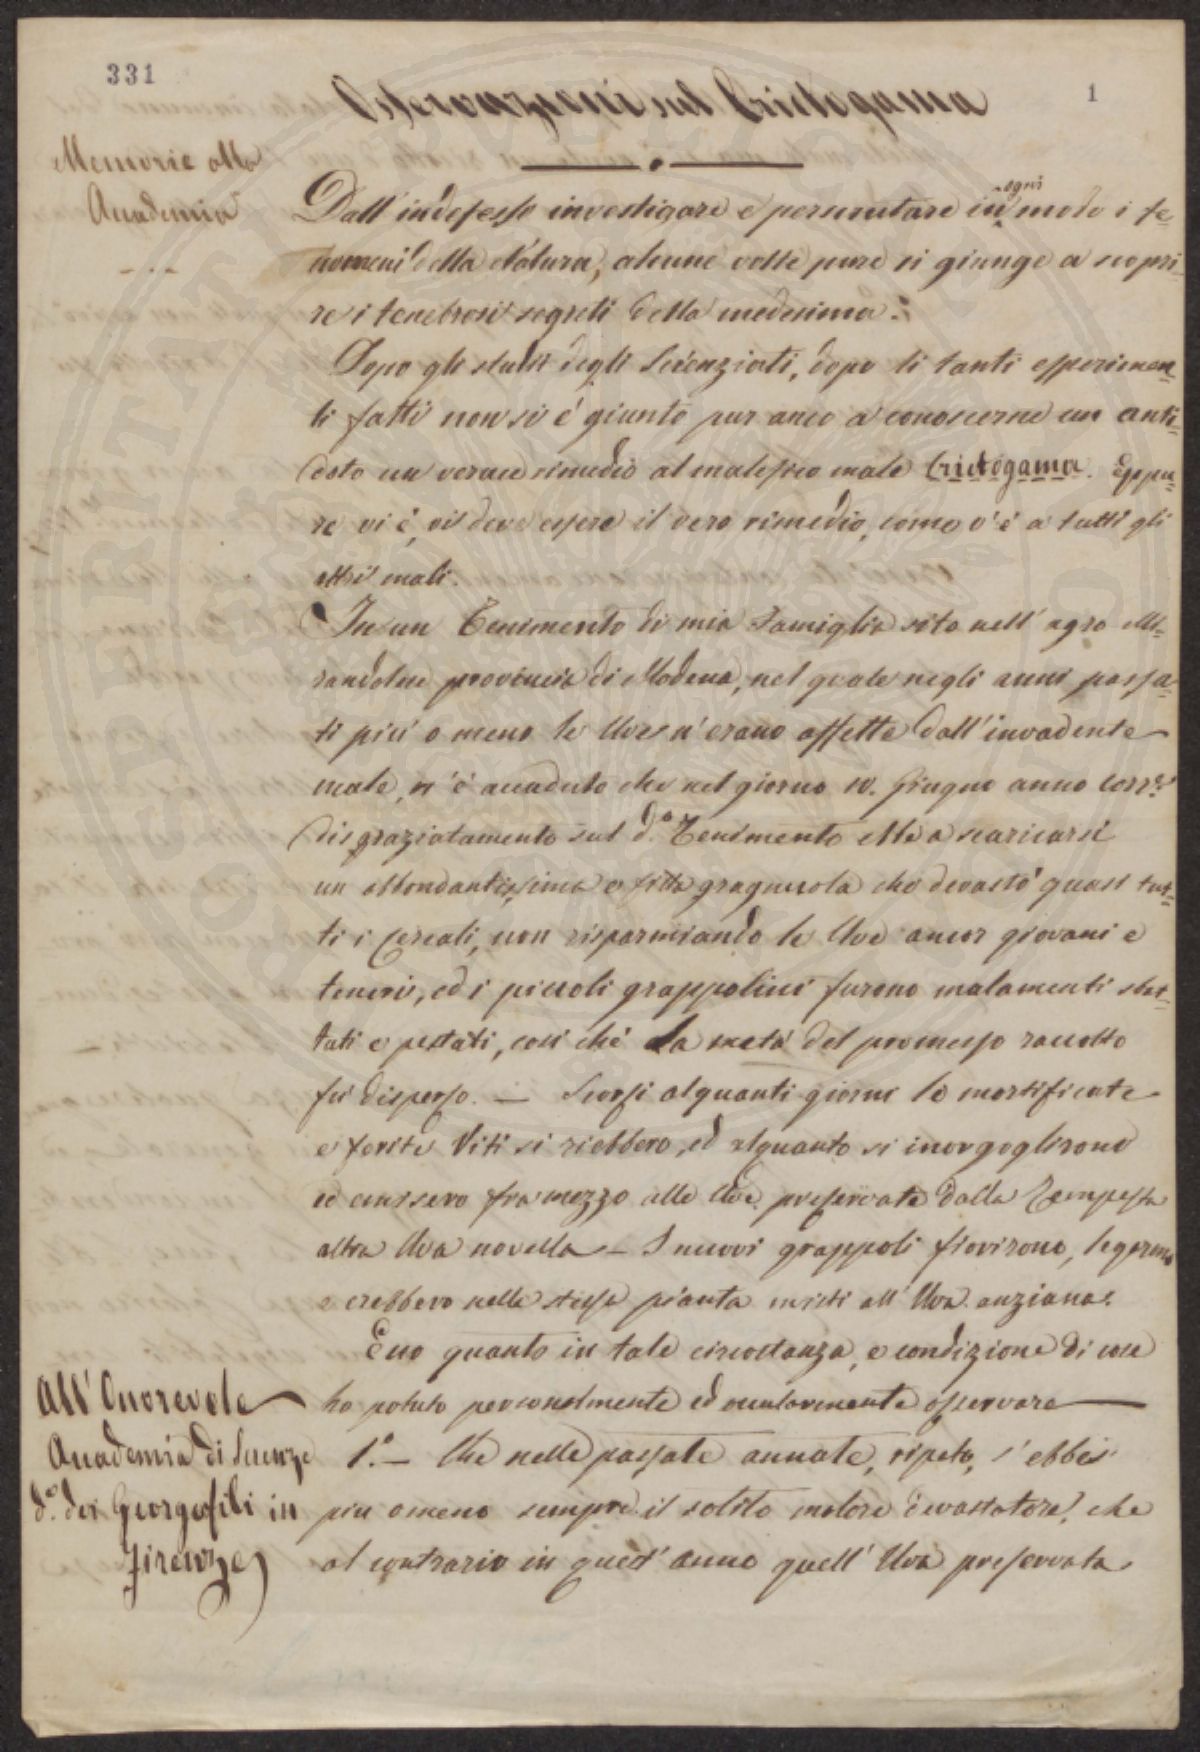 331
1
Osservazioni sul Crictogama
Memorie alla
Accademia
Dall'indefesso investigare e perscrutare in ogni modo i fe=
nomeni della Natura, alcune volte pure si giunge a scopri=
re i tenebrosi segreti della medesima.
Dopo gli studi degli Scienziati, dopo li tanti esperimen=
ti fatti non si è giunto pur anco a conoscerne un anti=
doto un verace rimedio al malefico male Crictogama. Eppu=
re vi è, vi deve essere il vero rimedio, come v'è a tutti gli
altri mali.
In un Tenimento di mia Famiglia sito nell'agro Mi=
randolese provincia di Modena, nel quale negli anni passa=
ti più o meno le Uve n'erano affette dall'invadente
male, n'è accaduto che nel giorno 10. Giugno anno corr.e
disgraziatamente sul d.o Tenimento ebbe a scaricarsi
un abbondantissima e fitta gragnuola che devastò quasi tut=
ti i Cereali, non risparmiando le Uve ancor giovani e
teneri, ed i piccoli grappolini furono malamenti sbat=
tuti e pestati, così chè la metà del promesso raccolto
fù disperso. — Scorsi alquanti giorni le mortificate
e ferite Viti si riebbero, ed alquanto si inorgoglirono
ed emisero framezzo alle Uve preservate dalla Tempesta
altra Uva novella — I nuovi grappoli fiorirono,
e crebbero nella stessa pianta misti all'Uva anziana.
Ecco quanto in tale circostanza, e condizione di cose
ho potuto personalmente ed oculármente osservare —
1.o — Che nelle passate annate, ripeto, s'ebbe
più o meno sempre il solito malore devastatore, che
al contrario in quest'anno quell'Uva preservata
All'Onorevole
Accademia di Scienze
d.a dei Georgofili in
Firenze